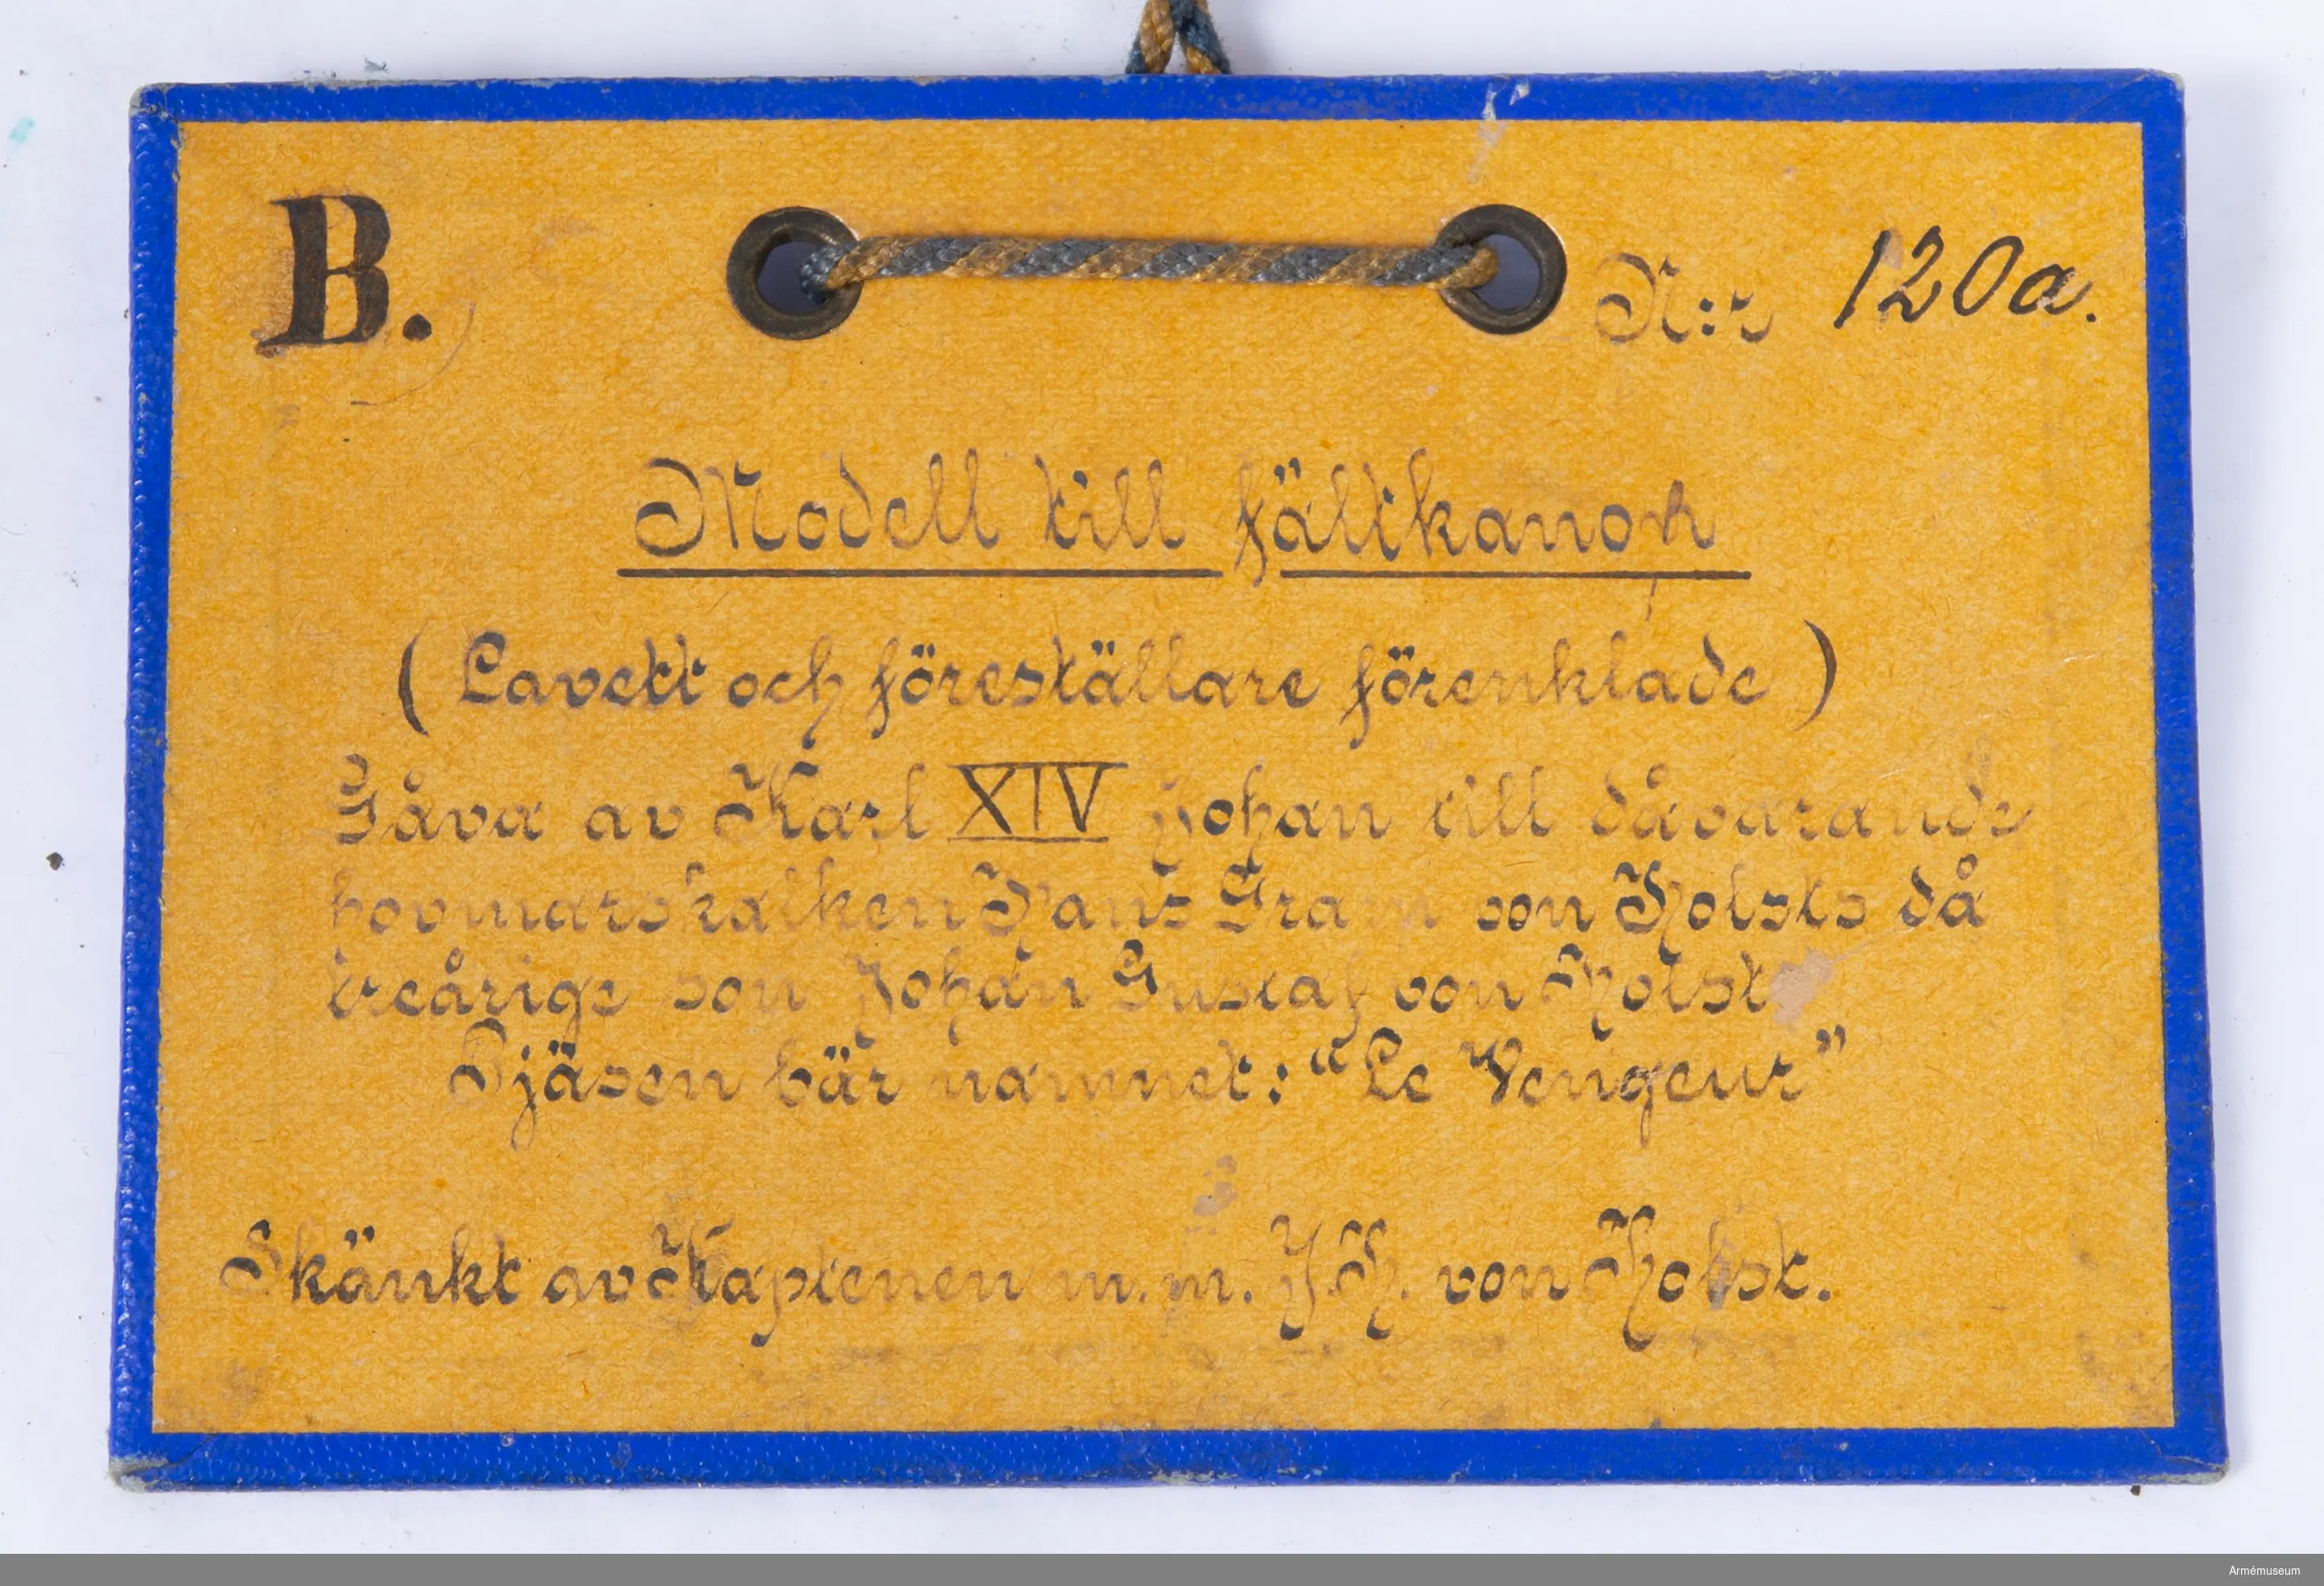 B.
N:r 120a.
Modell till fältkanon
(Lavett och föreställare förenklade)
Gåva av Karl XIV Johan till dåvarande
hovmarskalken Hans Gram von Holsts då
treårige son Johan Gustaf von Holst
Pjäsen bär namnet: "Le Vengeur"
Skänkt av Kaptenen m. m. J. H. von Holst.
Armémuseum